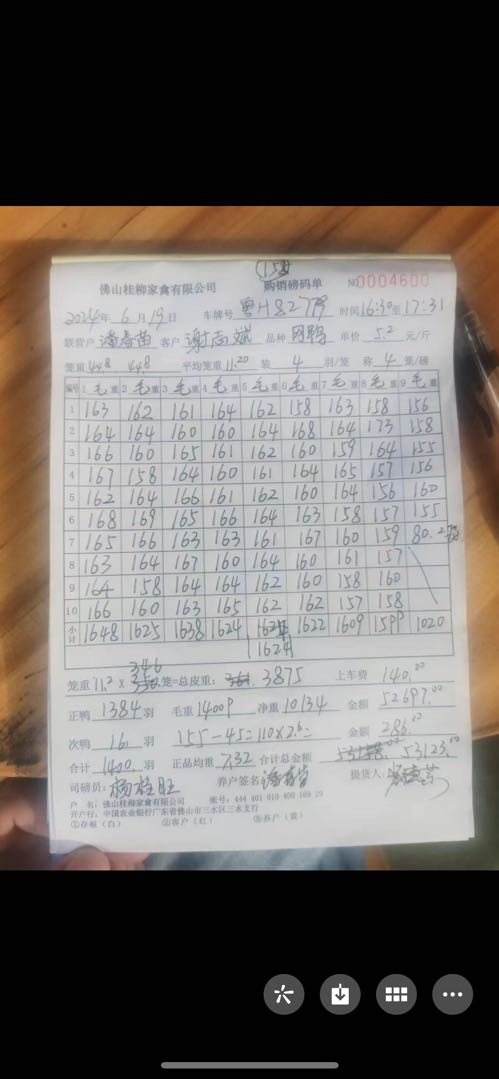 (158)
佛山桂柳家禽有限公司 购销磅码单 NO 0004600
2024年 6 月 19 日 车牌号 粤H827 时间 16:30 至 17:31
联营户 潘春苗 客户 谢志斌 品种 网鸭 单价 5.2 元/斤
笼重 448 448 平均笼重 11.20 装 4 羽/笼 称 4 笼/磅
编号 1 毛重 2 毛重 3 毛重 4 毛重 5 毛重 6 毛重 7 毛重 8 毛重 9 毛重
1 163 162 161 164 162 158 163 158 156
2 164 164 160 160 164 168 164 173 158
3 166 160 165 161 162 160 159 164 155
4 167 158 164 160 161 164 165 157 156
5 162 164 166 161 162 160 164 156 160
6 168 169 165 166 164 163 158 157 155
7 165 166 163 163 161 167 160 159 80.2
8 163 164 167 160 164 160 161 157
9 164 158 164 164 162 160 158 160
10 166 160 163 165 162 162 157 158
小计 1648 1625 1638 1624 1622 1609 1599 1020
1624
346
笼重 11.2 × 笼=总皮重: 3875 上车费 140.00
正鸭 1384 羽 毛重 14009 净重 10134 金额 52697.00
次鸭 16 羽 155-45=110×2.6= 金额 286.00
合计 1400 羽 正品均重 7.32 合计总金额 53123.00
司磅员: 杨桂旺 养户签名 潘春苗 提货人:
户 名: 佛山桂柳家禽有限公司 账号: 444 401 010 400 169 29
开户行: 中国农业银行广东省佛山市三水区三水支行
①存根(白) ②客户(红) ③养户(黄)